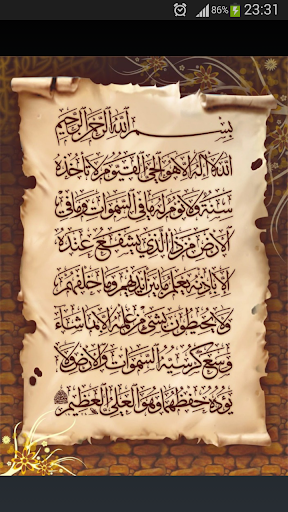 86% 23:31
بسم الله الرحمن الرحيم
الله لا إله إلا هو الحي القيوم لا تأخذه
سنة ولا نوم له ما في السموات وما في
الأرض من ذا الذي يشفع عنده
إلا بإذنه يعلم ما بين أيديهم وما خلفهم
ولا يحيطون بشيء من علمه إلا بما شاء
وسع كرسيه السموات والأرض ولا
يؤده حفظهما وهو العلي العظيم